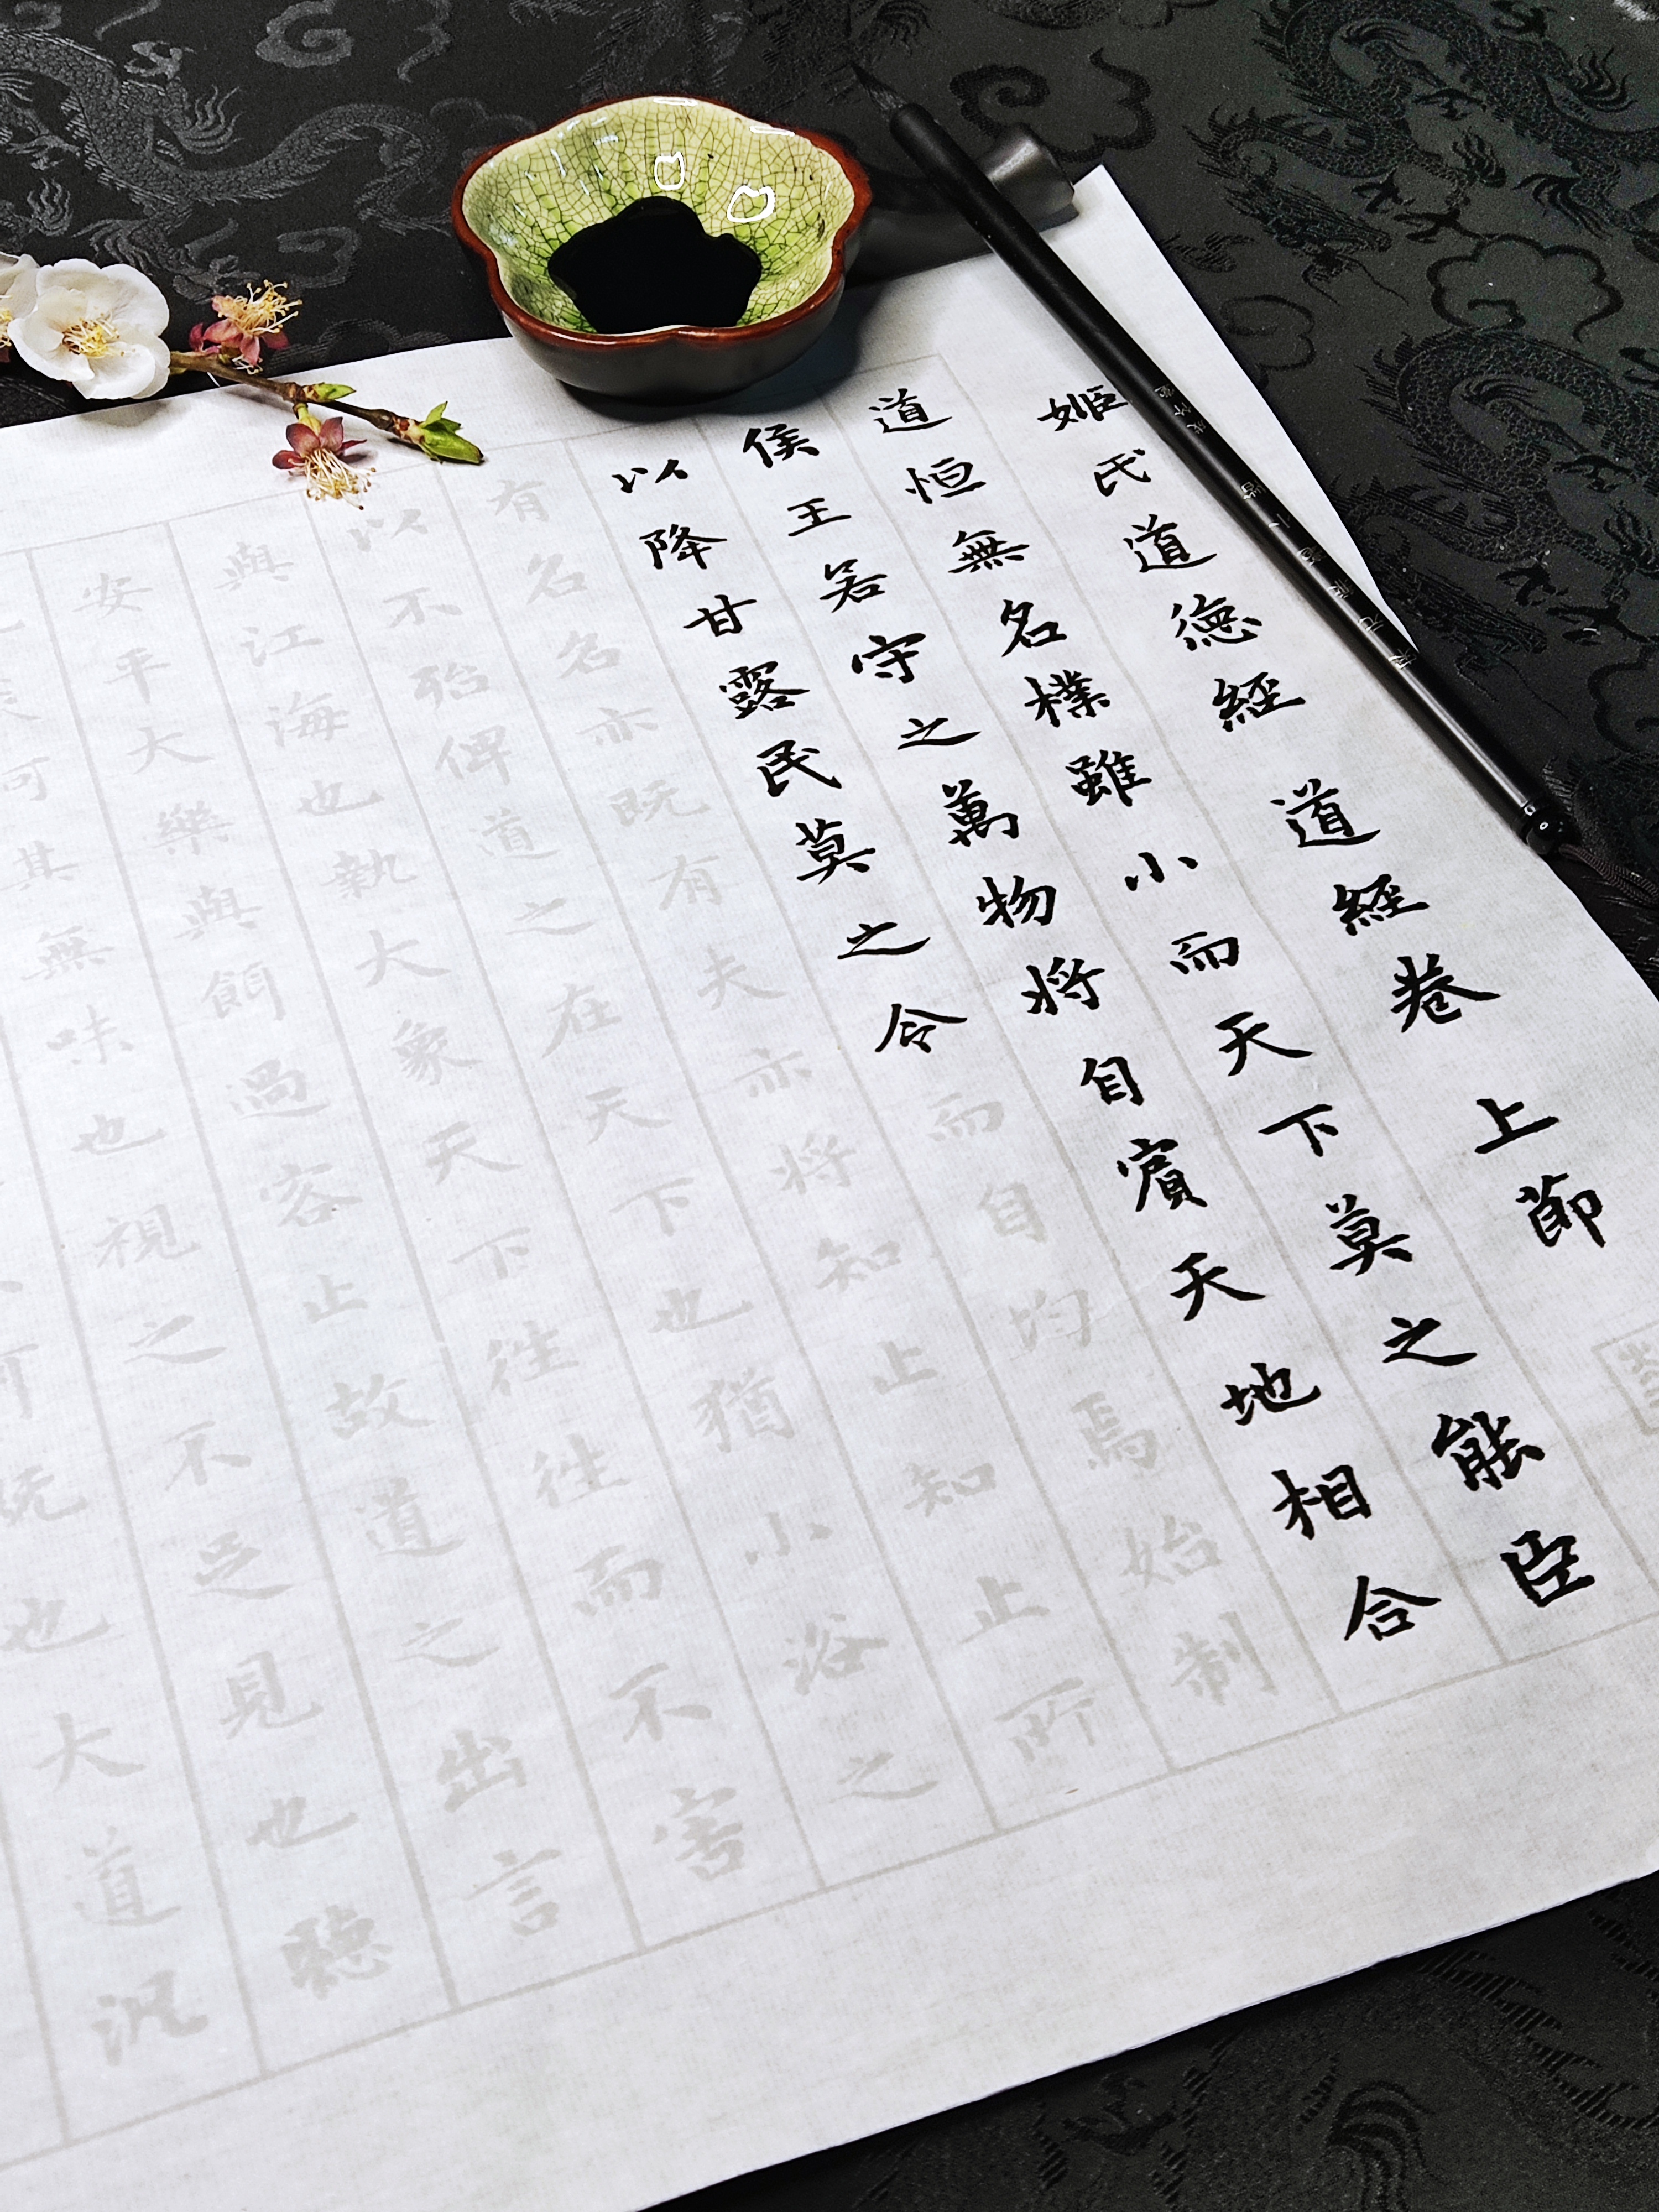 姬氏道德經 道經卷 上節
道恒無名樸雖小而天下莫之能臣
侯王若守之萬物將自賓天地相合
以降甘露民莫之令而自均焉始制
有名名亦既有夫亦將知止知止所
以不殆俾道之在天下也猶小浴之
與江海也執大象天下往往而不害
安平大樂與餌過容止故道之出言
其無味也視之不足見也聽
可既也大道汎